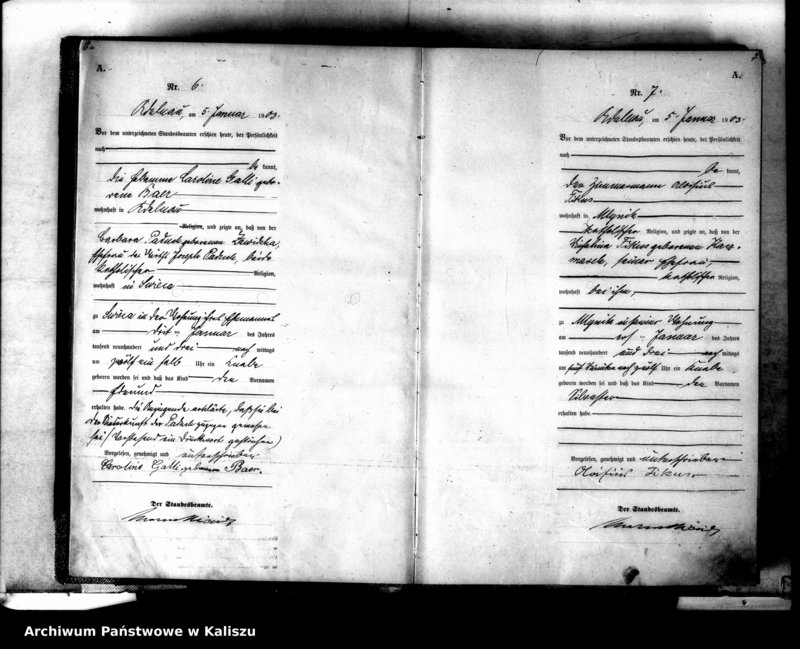 A.
Nr. 6.
Adelnau, am 5 Januar 1903.
Vor dem unterzeichneten Standesbeamten erschien heute, der Persönlichkeit
nach
be kannt,
die Hebamme Caroline Galli gebo-
rene Baer
wohnhaft in Adelnau
Religion, und zeigte an, daß von der
Barbara Paduch geborenen
Ehefrau des Wirth Joseph Paduch, beide
katholischer Religion,
wohnhaft in Swieca
zu Swieca in der Wohnung ihres Ehemannes
am drit ten Januar des Jahres
tausend neunhundert und drei nach mittags
um zwölf ein halb Uhr ein Knabe
geboren worden sei und daß das Kind den Vornamen
Edmund
erhalten habe. Die Anzeigende erklärte, daß sie bei
der Niederkunft der Paduch zugegen gewesen
sei (Vorstehend ein Druckwort gestrichen)
Vorgelesen, genehmigt und unterschrieben
Caroline Galli geborene Baer.
Der Standesbeamte.
A.
Nr. 7.
Adelnau, am 5 Januar 1903.
Vor dem unterzeichneten Standesbeamten erschien heute, der Persönlichkeit
nach
be kannt,
der Zimmermann Aloisius
Fikus
wohnhaft in Mlynik
katholischer Religion, und zeigte an, daß von der
Fikus geborenen Kacz-
marek, seiner Ehefrau,
katholischer Religion,
wohnhaft bei ihm,
zu Mlynik in seiner Wohnung
am ers ten Januar des Jahres
tausend neunhundert und drei nach mittags
um fünf zwölf Uhr ein Knabe
geboren worden sei und daß das Kind den Vornamen
Silvester
erhalten habe.
Vorgelesen, genehmigt und unterschrieben
Aloisius Fikus
Der Standesbeamte.
Archiwum Państwowe w Kaliszu